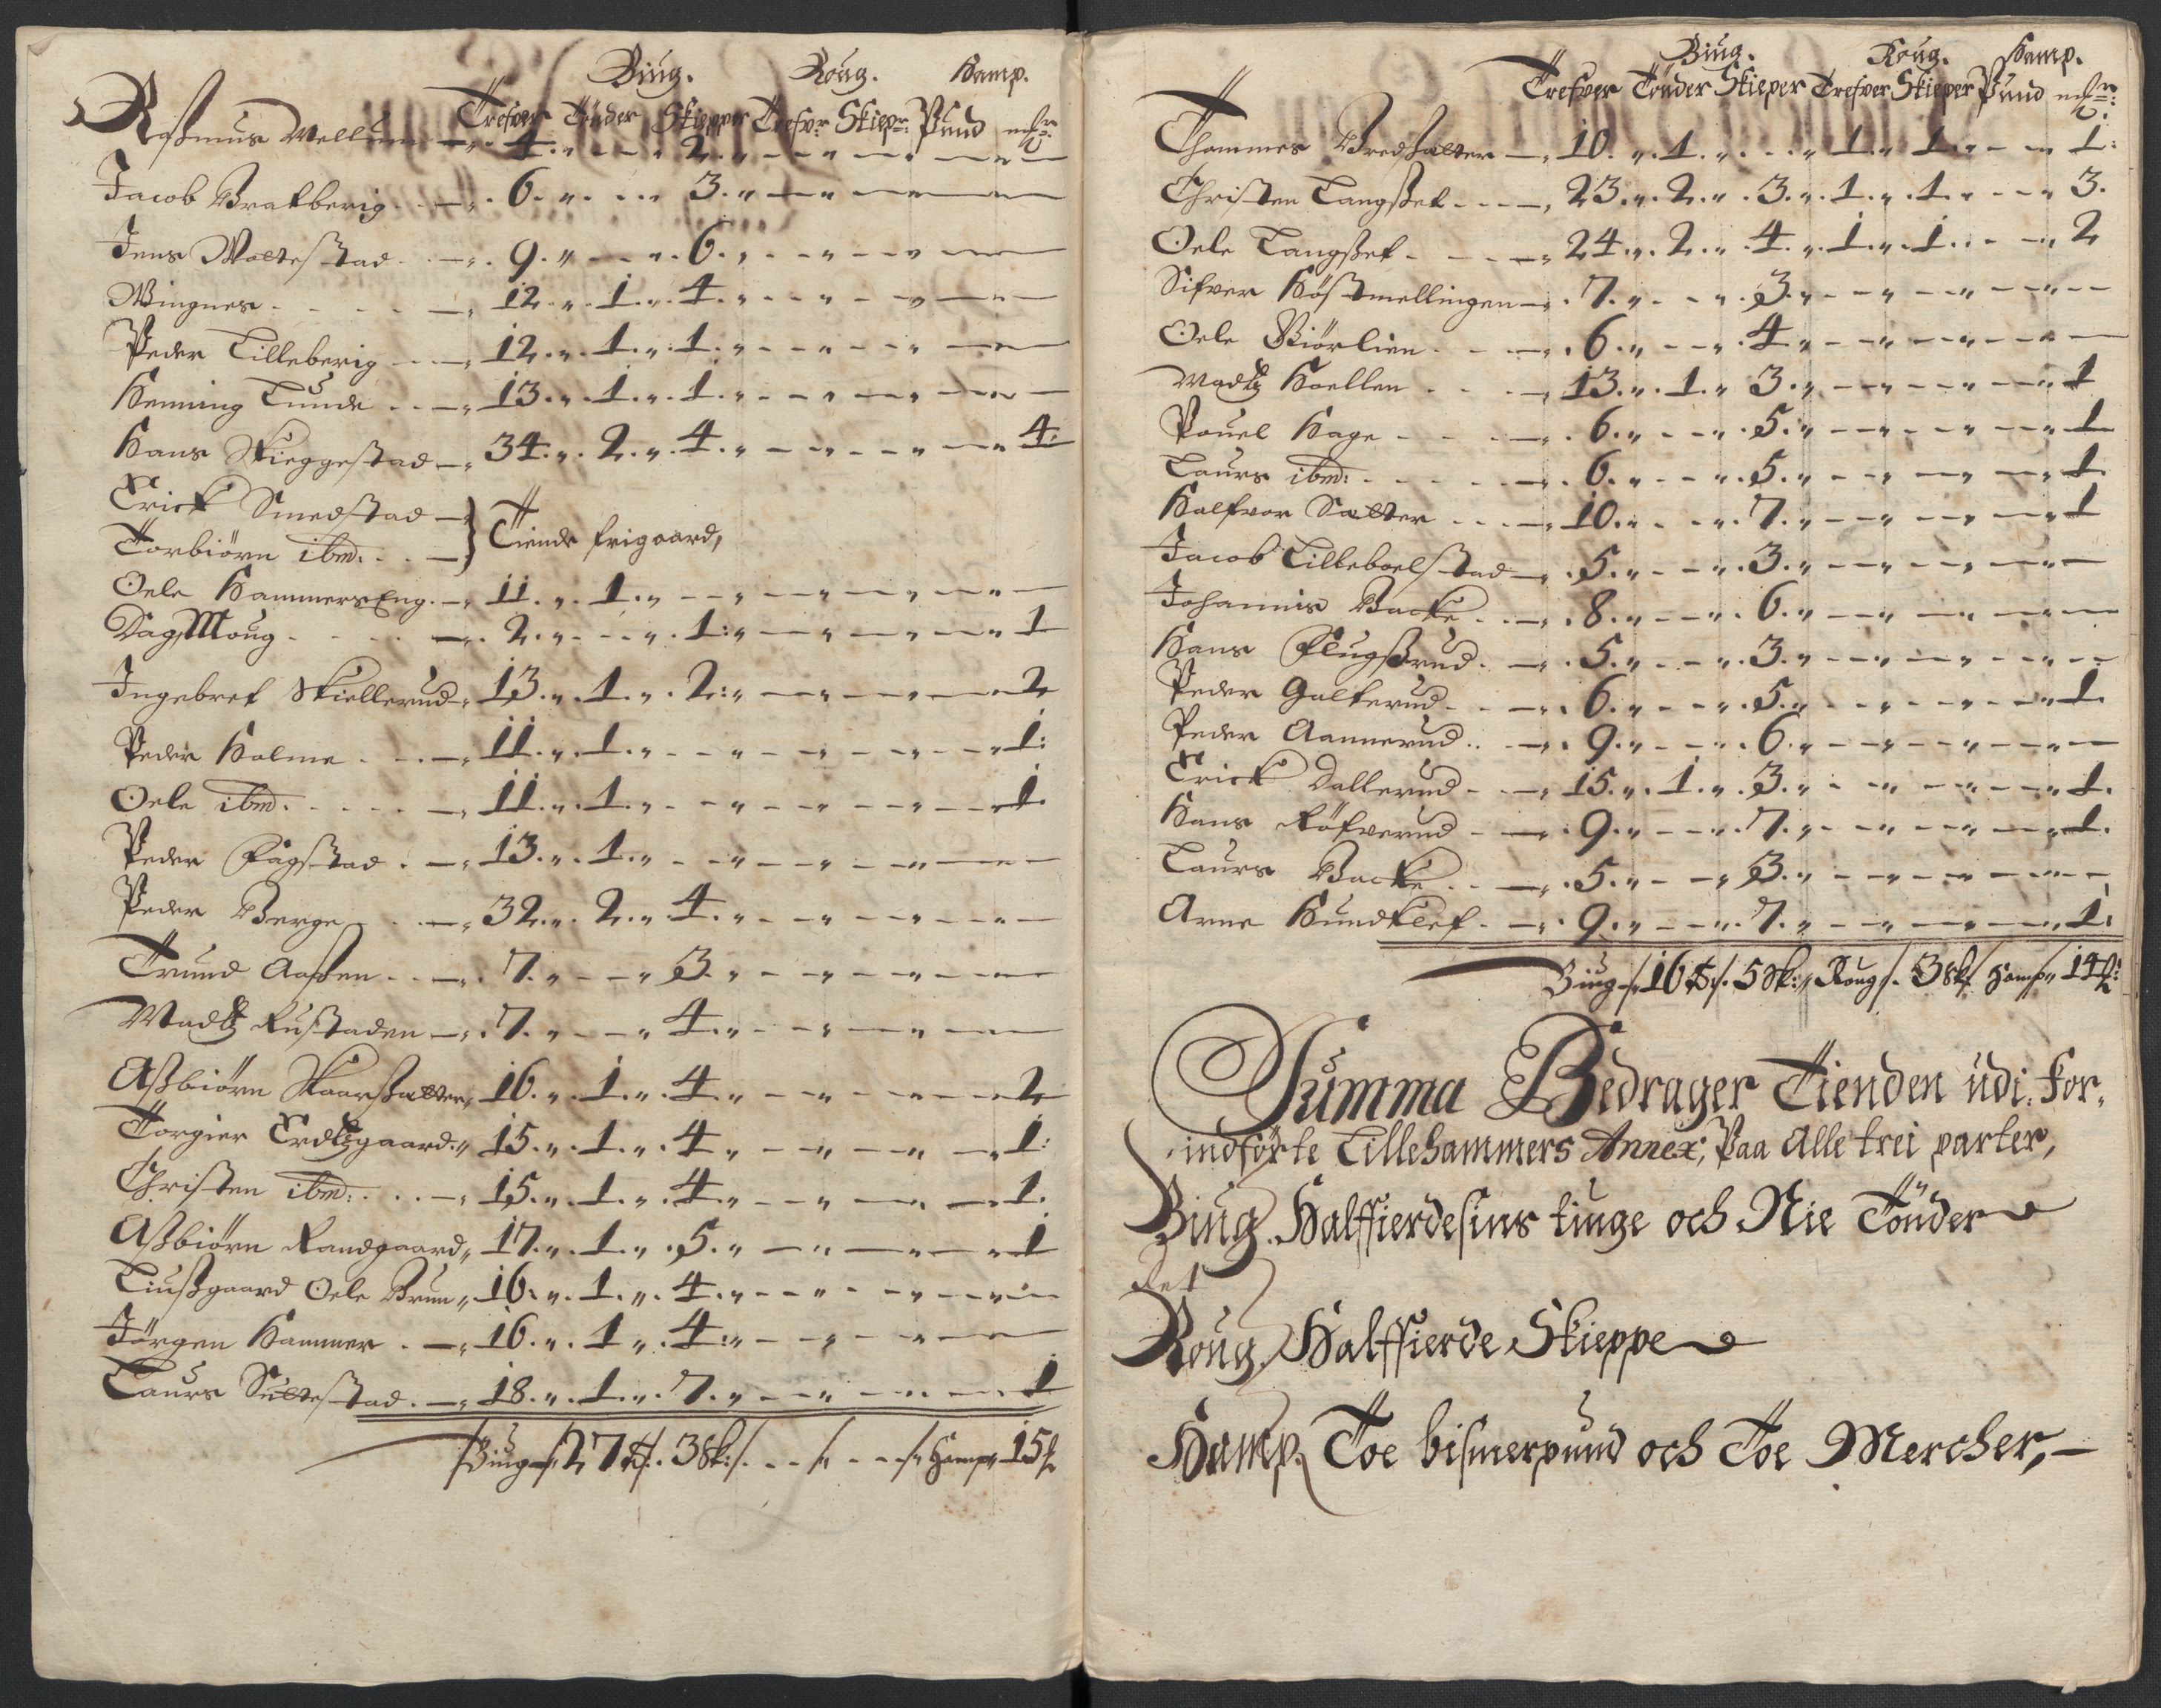 Biug. Roug. Hamp.
Trefver Tönder Skiepper Trefvr Skiepr: Pund mkr
Rasmus Mellum 4. 2.
Jacob Bratberig 6. 3.
Jens Woltestad 9. 6.
Wingnes 12. 1. 4.
Peder Lilleberig 12. 1. 1.
Henning Lunde 13. 1. 1.
Hans Skieggestad 34. 2. 4. 4.
Erick Smedstad
Torbiörn ibm. } Tiende frigaard,
Oele HammersEng. 11. 1.
Dag Moug 2. 1: 1
Ingebret Skiellerud 13. 1. 2: 2
Peder Holme 11. 1. 1:
Oele ibm. 11. 1. 1.
Peder Fågstad 13. 1.
Peder Berge 32. 2. 4.
Trund Aassen 7. 3.
Madtz Rustaden 7. 4.
Assbiörn Skaarsæter 16. 1. 4. 2
Torgier Erdtzgaard 15. 1. 4 1:
Christen ibm: 15. 1. 4. 1.
Assbiörn Randgaard 17. 1. 5. 1
Liussgaard Oele Brun 16. 1. 4.
Jörgen Hammer 16. 1 4:
Laurs Sultestad 18. 1. 7. 1
Biug 27 tr. 3 sk: Hamp 15
Biug. Roug. Hamp.
Trefver Tönder Skieper Trefver Skieper Pund mkr:
Thommes Bredsæter 10. 1. 1. 1. 1:
Christen Langsset 23. 2. 3. 1. 1. 3.
Oele Langsset 24. 2. 4. 1. 1. 2
Sifver Höstmellingen 7. 3.
Oele Biörlien 6. 4
Madtz Hoellen 13. 1. 3. 1
Pouel Hage 6. 5. 1
Laurs ibm: 6. 5. 1.
Halfvor Sætter 10. 7. 1
Jacob Lilleboelstad 5. 3.
Johannis Backe 8. 6.
Hans Flugssrud 5. 3.
Peder Galterud 6. 5. 1.
Peder Aannerud 9. 6.
Erick Dallerud 15. 1. 3. 1.
Hans Röfverud 9. 7. 1.
Laurs Backe 5. 3.
Arne Hundklef 9. 7. 1.
Biug 16 tr. 5 sk: Roug 3 sk Hamp 14
Summa Bedrager Tienden udi. For,
indförte Lillehammers Annex, Paa Alle trei parter,
Biug. Halffierdesins tiuge och Nie Tönder
Ret
Roug. Halffierde Skieppe
Hamp. Toe bismerpund och Toe Mercher,